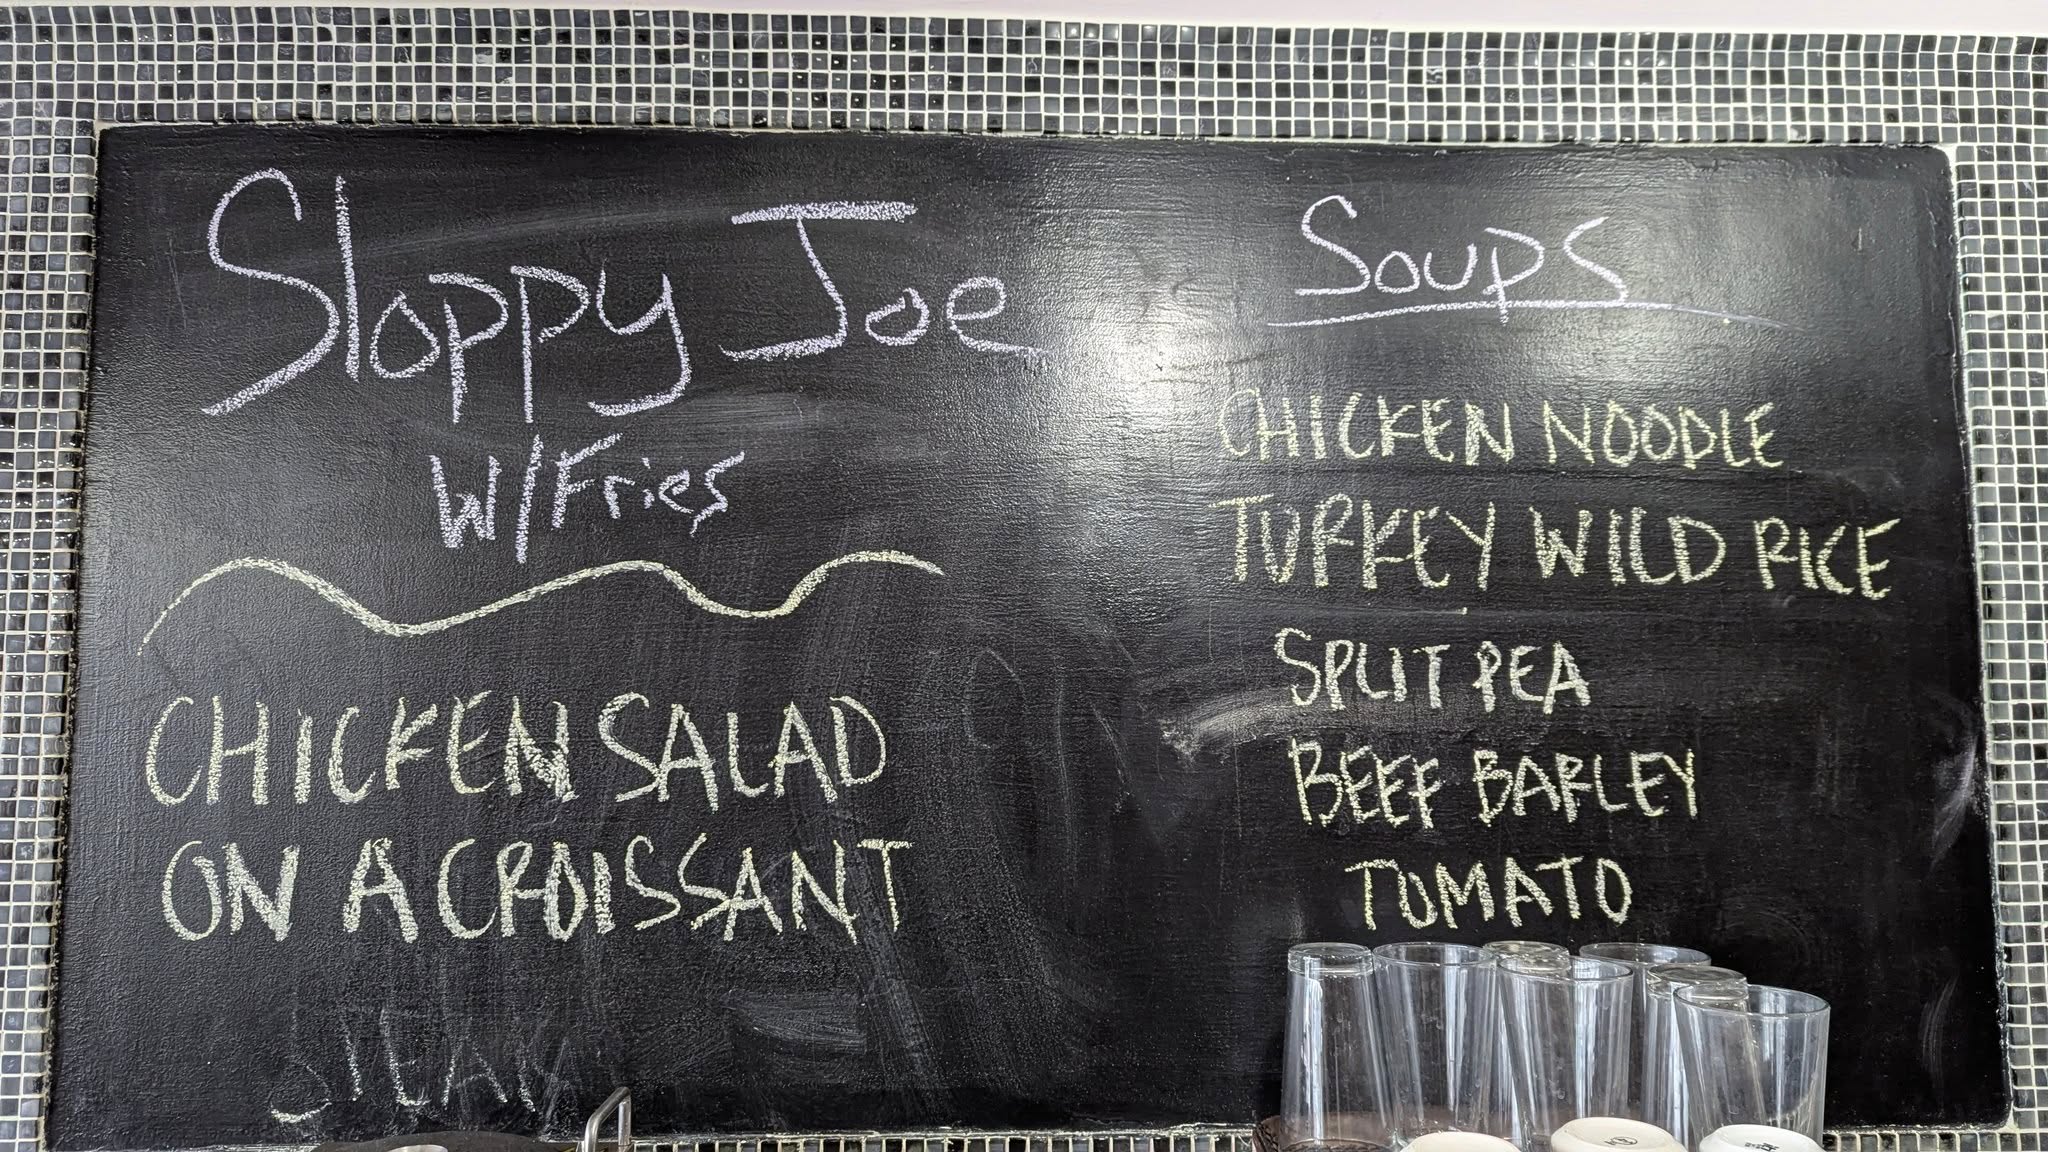 Sloppy Joe
W/Fries
CHICKEN SALAD
ON A CROISSANT
STEAK
Soups
CHICKEN NOODLE
TURKEY WILD RICE
SPLIT PEA
BEEF BARLEY
TOMATO